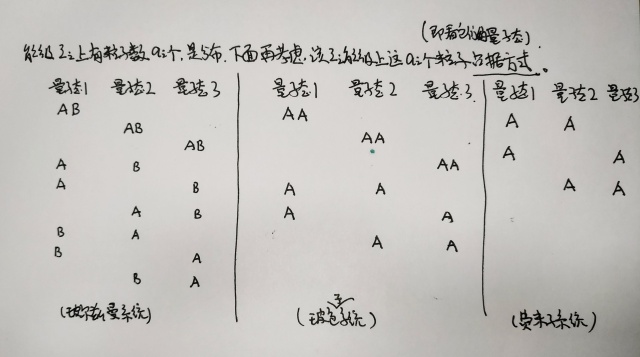 (即看占据量子态)
能级 εl 上有粒子数 al个,是分布,下面再考虑,该 εl 能级上这 al个粒子占据方式。
量子态1 量子态2 量子态3 量子态1 量子态2 量子态3 量子态1 量子态2 量子态3
AB AA A A
AB AA A A
AB AA A A
A B A A
A B A A
A B A A
B A
B A
B A
(玻耳兹曼系统) (玻色子系统) (费米子系统)